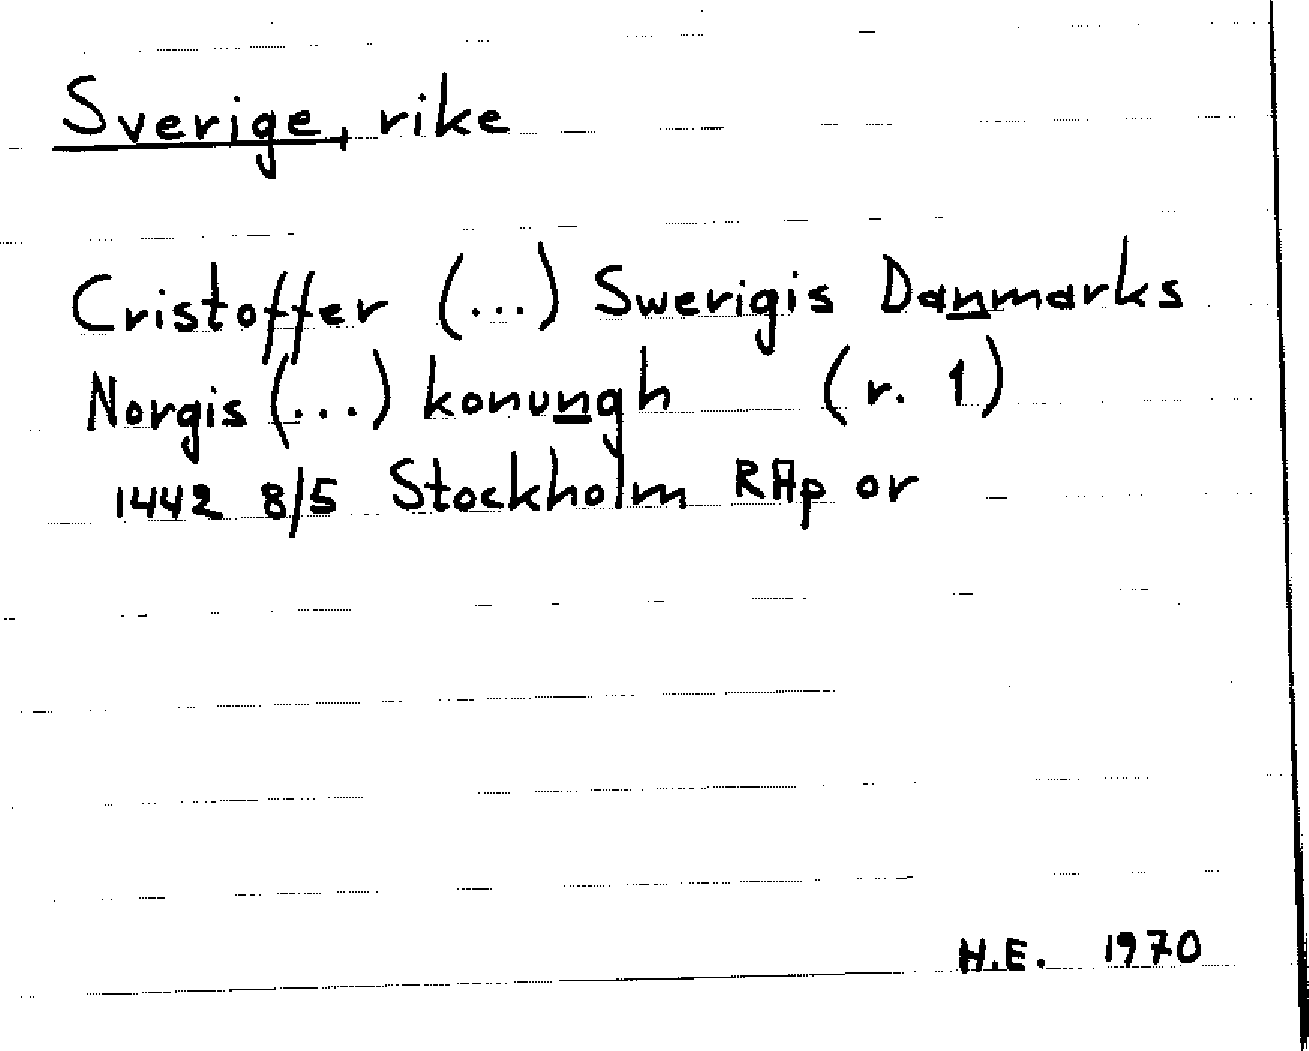 Sverige, rike
Cristoffer (...) Swerigis Danmarks
Norgis (...) konungh (r. 1)
1442 8/5 Stockholm RAp or
H.E. 1970